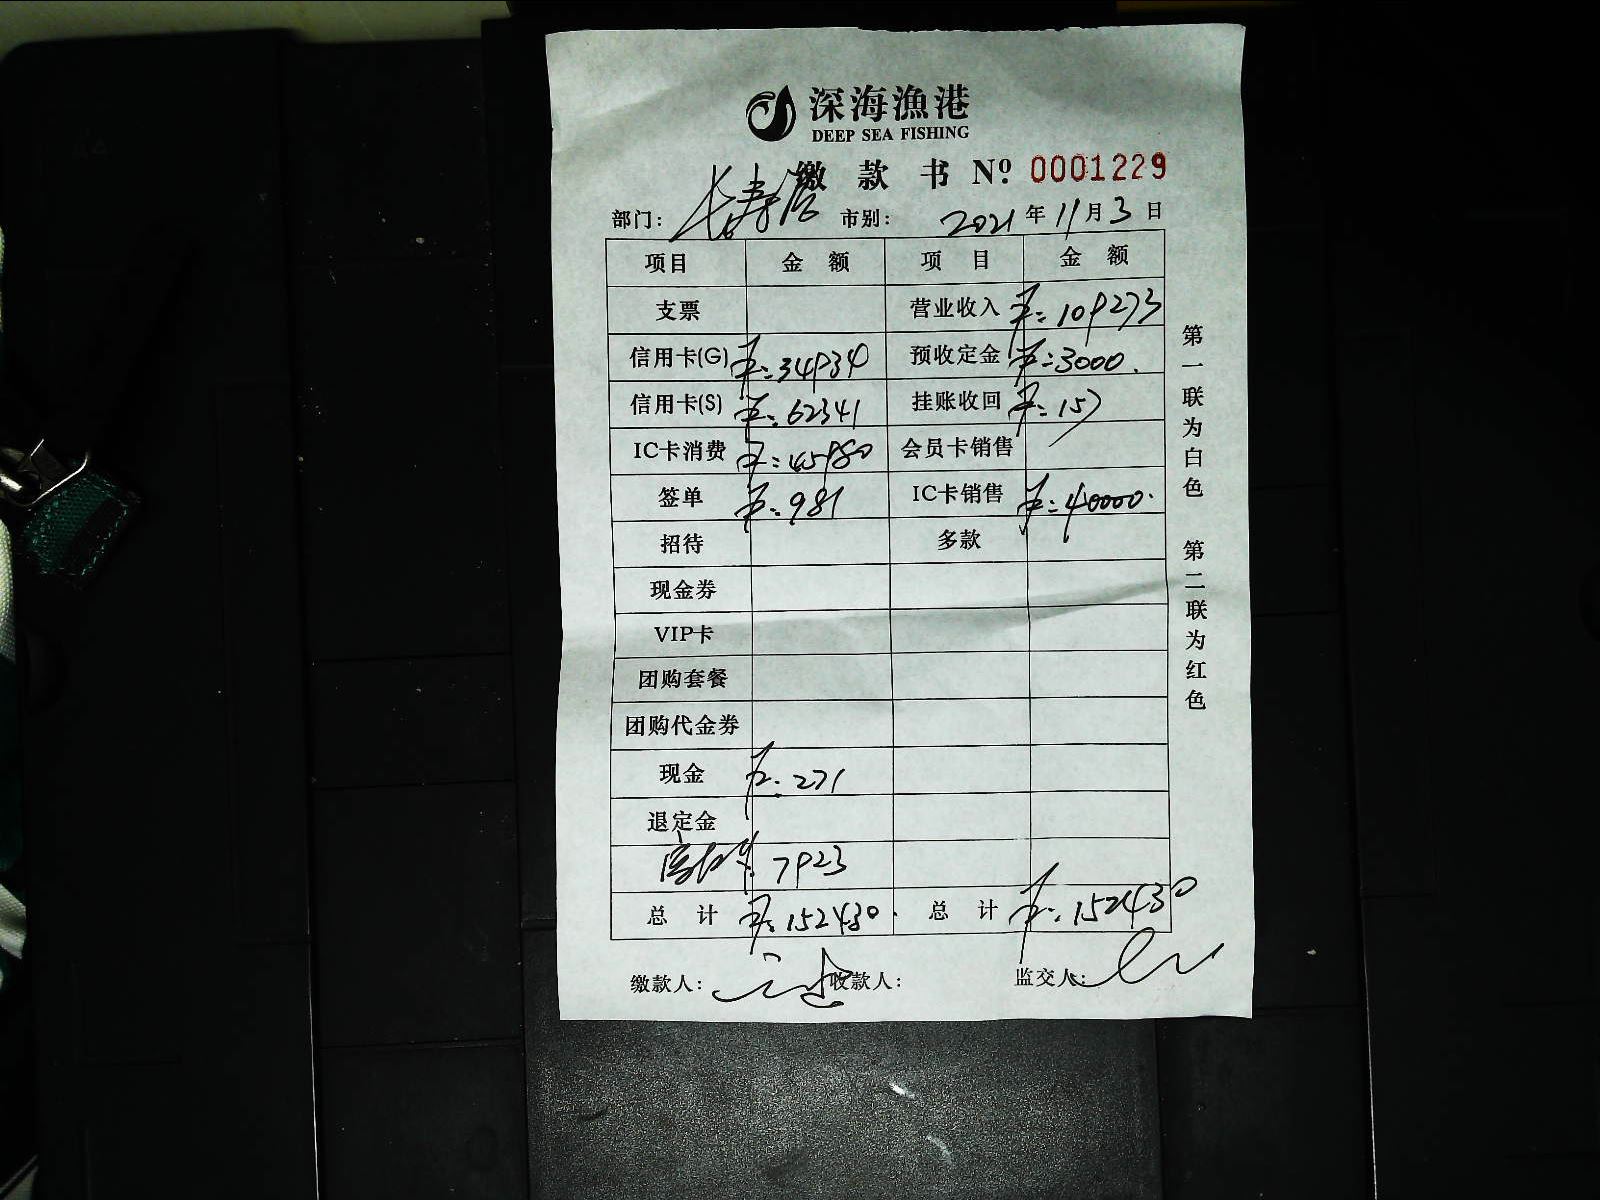 深海漁港
DEEP SEA FISHING
缴款书 Nº 0001229
部门: 长寿店 市别: 2021年11月3日
项目 金额 项目 金额
支票 营业收入 ¥:109273
信用卡(G) ¥:34934 预收定金 ¥:3000.
信用卡(S) ¥:62341 挂账收回 ¥:157
IC卡消费 ¥:45980 会员卡销售
签单 ¥:981 IC卡销售 ¥:40000.
招待 多款
现金券
VIP卡
团购套餐
团购代金券
现金 ¥:271
退定金
7923
总计 ¥:152430. 总计 ¥:152430
缴款人: 收款人: 监交人:
第一联为白色 第二联为红色